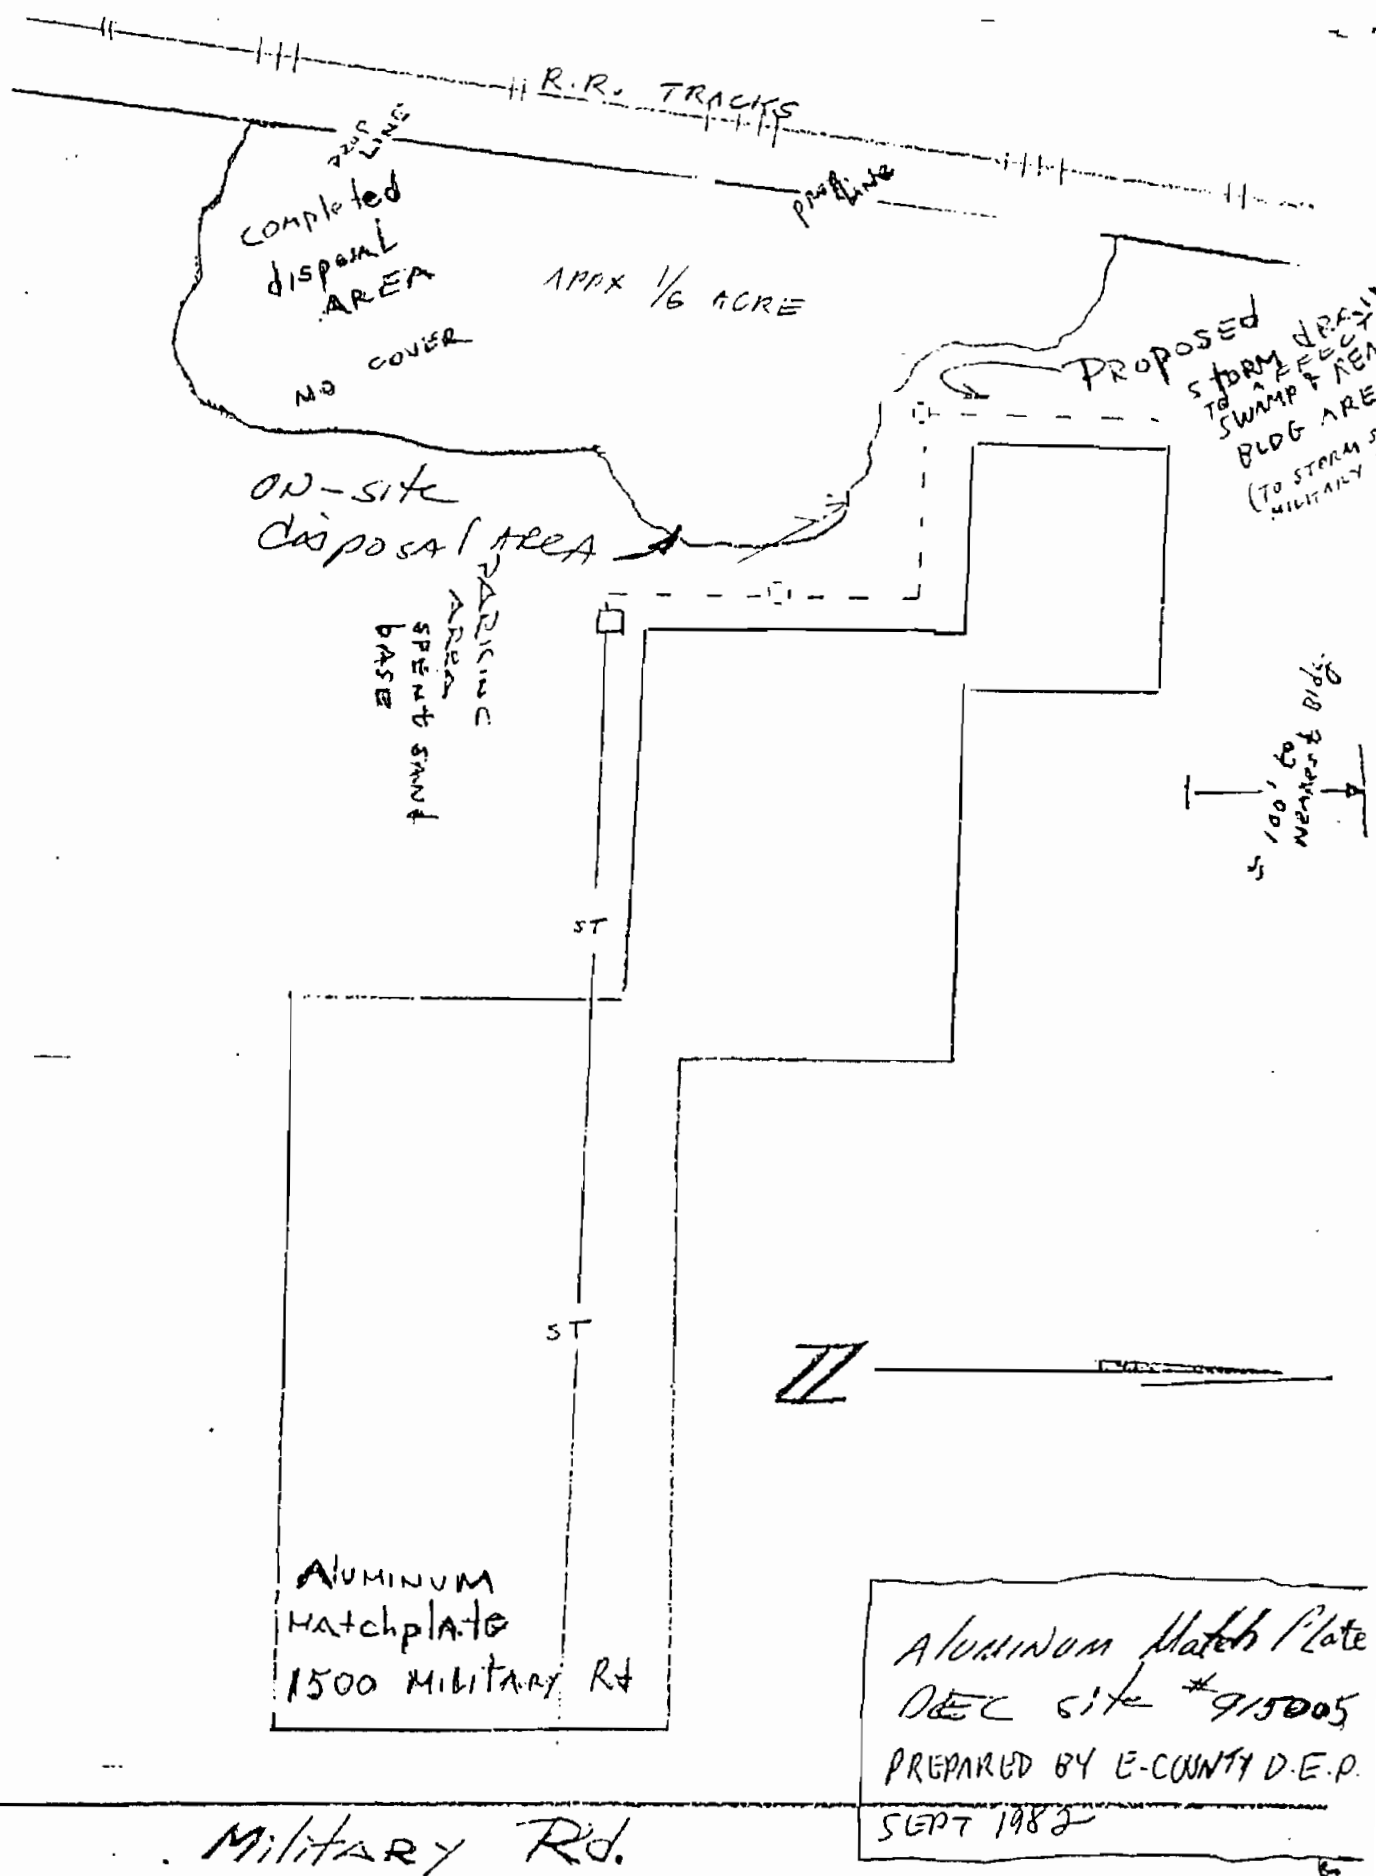 R.R. TRACKS
PROP
LINE
prop line
completed
disposal
AREA
APPX 1/6 ACRE
NO COVER
PROPOSED
STORM
TO
SWAMP &
BLDG
(TO STORM
MILITARY
ON-site
disposal AREA
PARKING
AREA
SPENT SAND
BASE
100' to
NEAREST Bldg.
ST
ST
N
ALUMINUM
Matchplate
1500 MILITARY Rd
Aluminum Match Plate
DEC site #915005
PREPARED BY E-COUNTY D.E.P.
SEPT 1982
Military Rd.